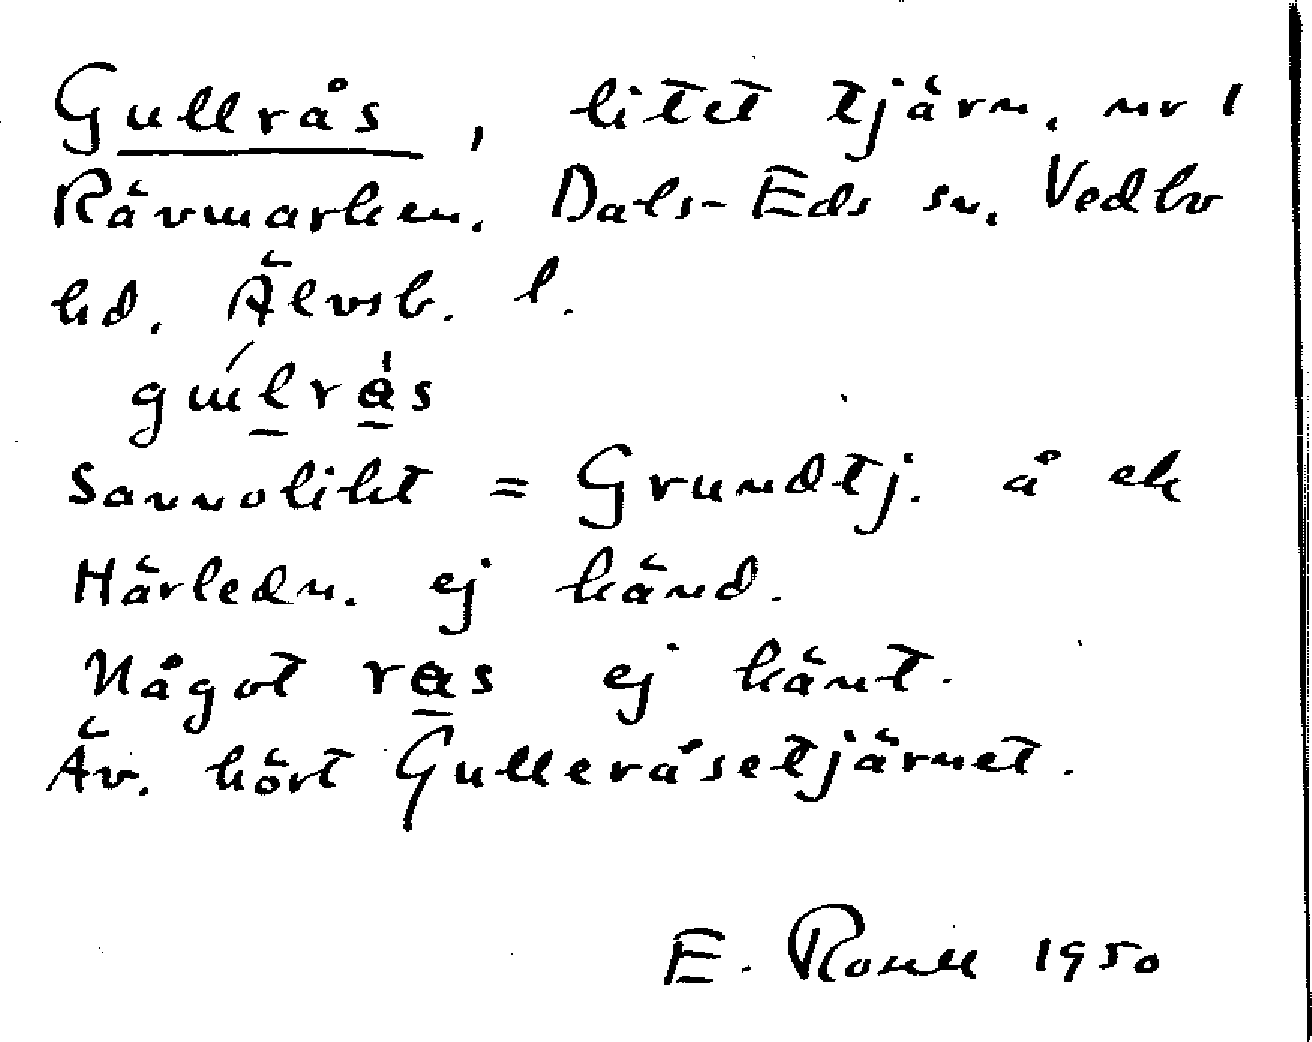 Gullrås, litet tjärn, nr 1
Rävmarken. Dals-Eds sn. Vedbo
hd. Älvsb. l.
sannolikt = Grundtj. å ek
Härledn. ej känd.
Något ras ej känt.
Äv. hört Gulleråsetjärnet.
E. 1950